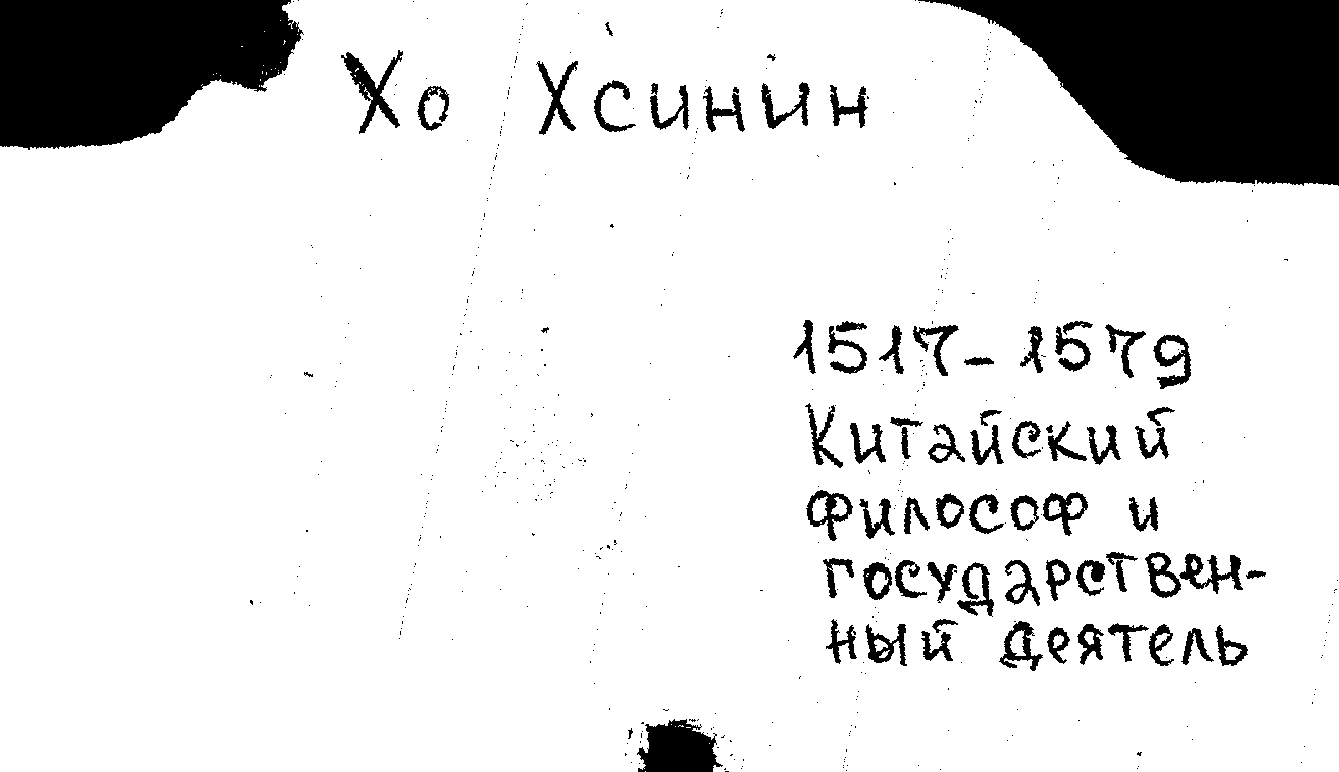 Хо Хсинин
1517-1579
Китайский
философ и
государствен-
ный деятель